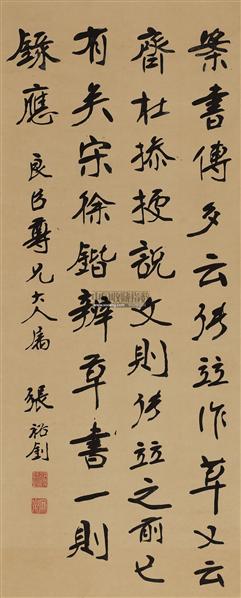 案書傳多云張芝作草又云
齊杜操撰說文則張芝之前已
有矣宋徐鍇辨草書一則
錄應
良臣尊兄大人屬 張裕釗